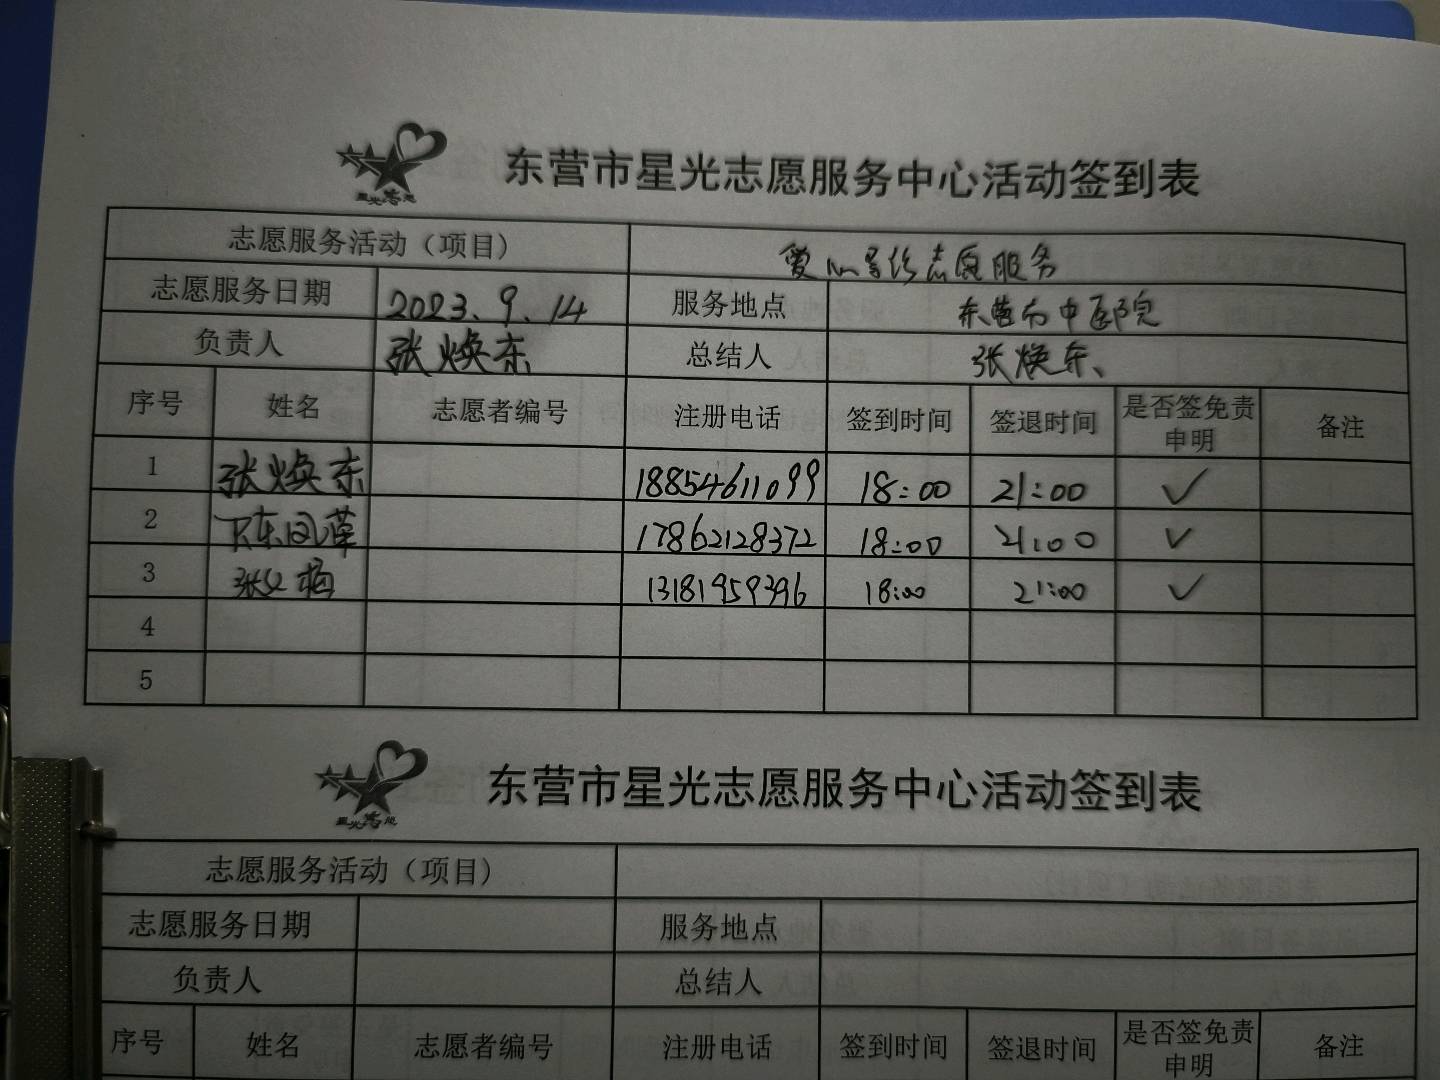 东营市星光志愿服务中心活动签到表
志愿服务活动（项目） 爱心 志愿服务
志愿服务日期 2023.9.14 服务地点 东营市中医院
负责人 张焕东 总结人 张焕东、
序号 姓名 志愿者编号 注册电话 签到时间 签退时间 是否签免责申明 备注
1 张焕东 18854611099 18:00 21:00 ✓
2 17862128372 18:00 21:00 ✓
3 13181959396 18:00 21:00 ✓
4
5
东营市星光志愿服务中心活动签到表
志愿服务活动（项目）
志愿服务日期 服务地点
负责人 总结人
序号 姓名 志愿者编号 注册电话 签到时间 签退时间 是否签免责申明 备注